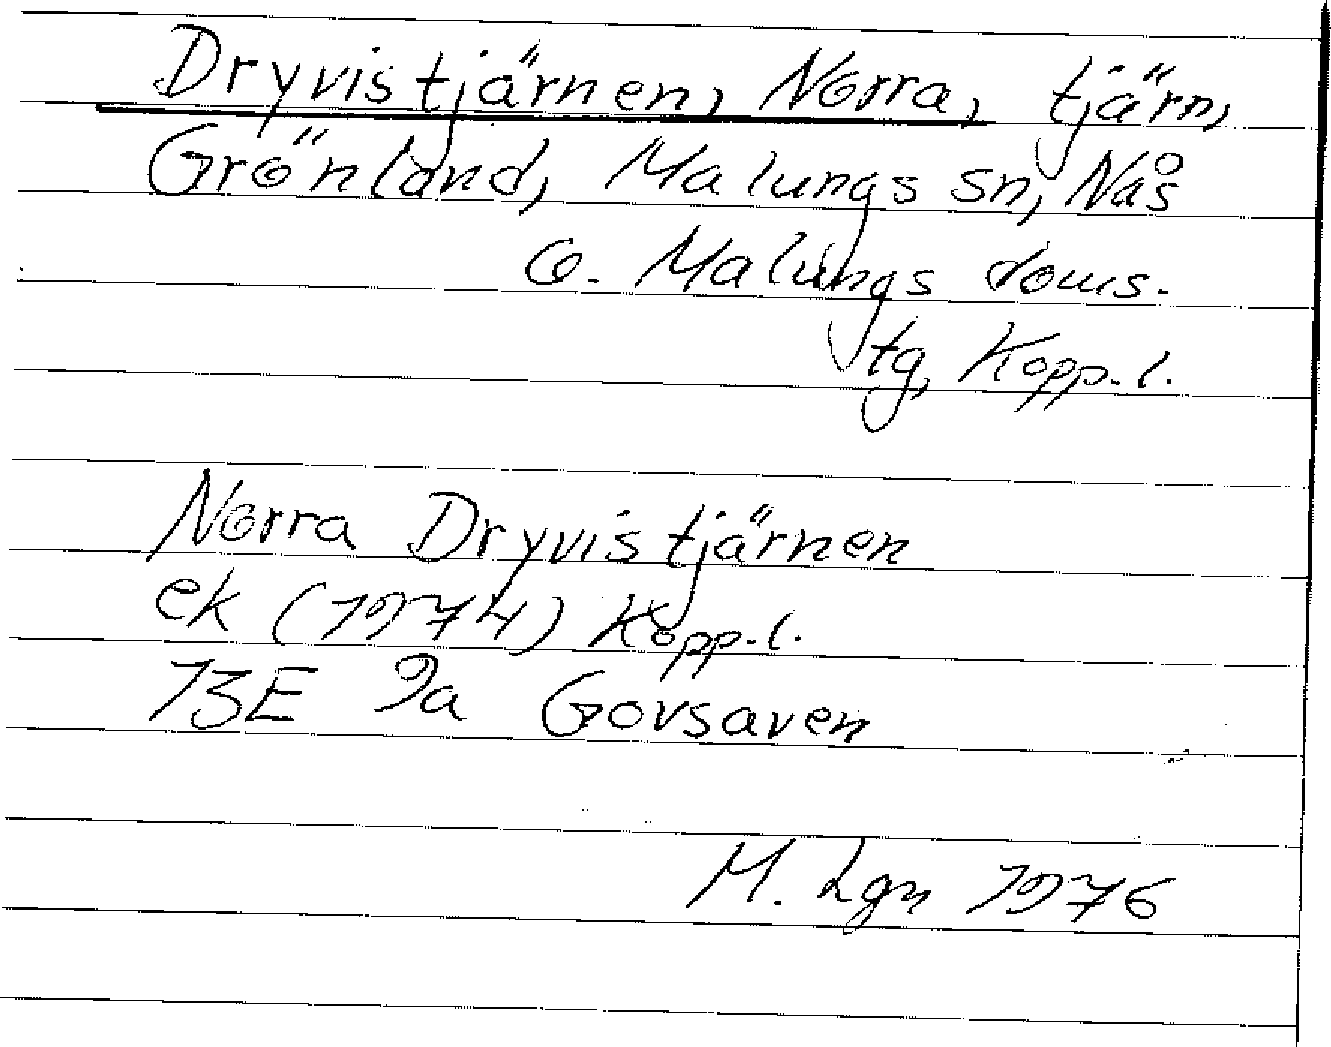 Dryvistjärnen, Norra, tjärn,
Grönland, Malungs sn, Nås
o. Malungs doms.
tg, Kopp.l.
Norra Dryvistjärnen
ek (1974) Kopp.l.
13E 9a Govsaven
M. Lgn 1976